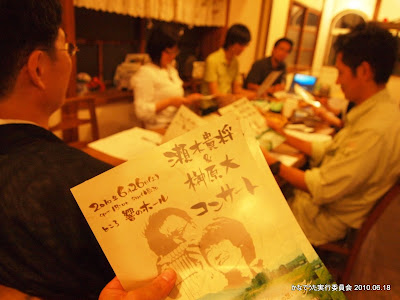 瀬木貴将
&
榊原 大
コンサート
2010年6月26日(土)
ところ 響のホール
実行委員会 2010.06.18